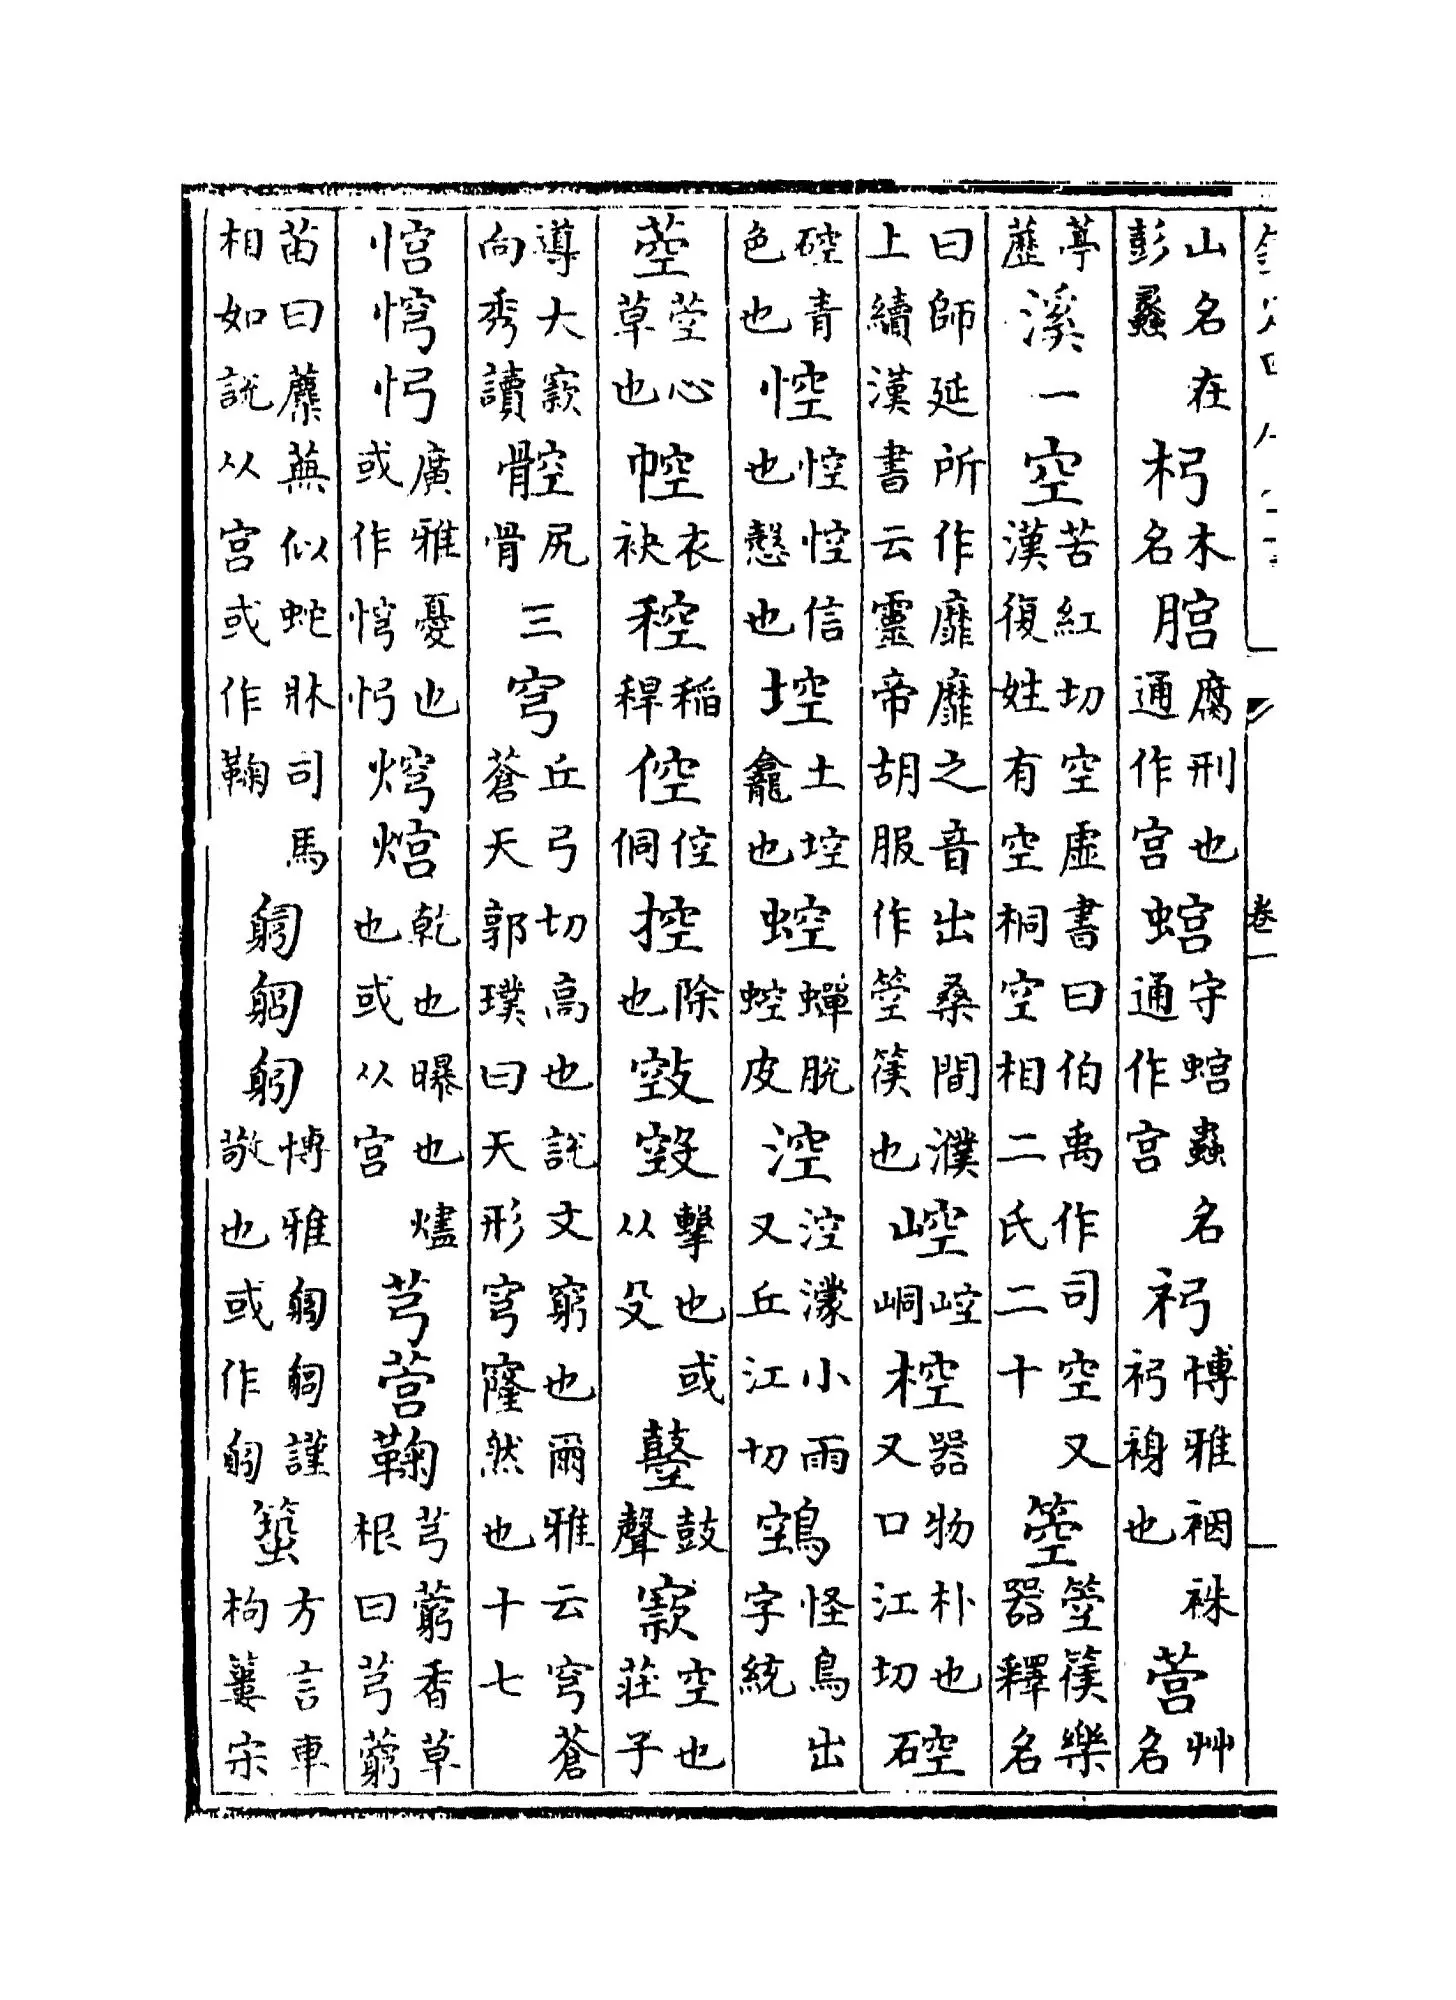 卷一
山名在彭蠡 杛木名 腐刑也通作宮 守蟲名通作宮 博雅裀袾也 营艸名
葶藶 溪一 空苦紅切空虛書曰伯禹作司空又漢復姓有空桐空相二氏二十 箜箜篌樂器釋名
曰師延所作靡靡之音出桑間濮上續漢書云靈帝胡服作箜篌也 崆崆峒 椌器物朴也又口江切 硿
硿青色也 悾悾悾信也慤也 埪土埪龕也 蟬脫皮 涳涳濛小雨又丘江切 鵼怪鳥出字統
心草也 衣袂 䅝稻稈 倥倥侗 控除也 擊也或从殳 鼓聲 窾空也莊子
導大窾向秀讀 尻骨 三 穹丘弓切高也說文窮也爾雅云穹蒼蒼天郭璞曰天形穹窿然也十七
廣雅憂也或作 焪乾也曝也燼也或从宮 芎营芎藭香草根曰芎藭
苗曰蘪蕪似蛇牀司馬相如說从宮或作 博雅謹敬也或作 方言車枸簍宋